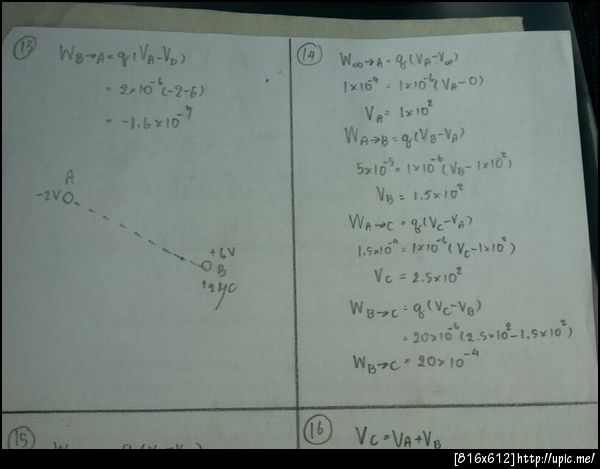 13
W_B→A = q(V_A-V_B)
= 2×10^-6(-2-6)
= -1.6×10^-7
A
-2V
+6V
B
+2μC
14
W_∞→A = q(V_A-V_∞)
1×10^-4 = 1×10^-6(V_A-0)
V_A = 1×10^2
W_A→B = q(V_B-V_A)
5×10^-5 = 1×10^-6(V_B-1×10^2)
V_B = 1.5×10^2
W_A→C = q(V_C-V_A)
1.5×10^-4 = 1×10^-6(V_C-1×10^2)
V_C = 2.5×10^2
W_B→C = q(V_C-V_B)
= 20×10^-6(2.5×10^2-1.5×10^2)
W_B→C = 20×10^-4
15
16
V_C = V_A+V_B
[816x612]http://upic.me/